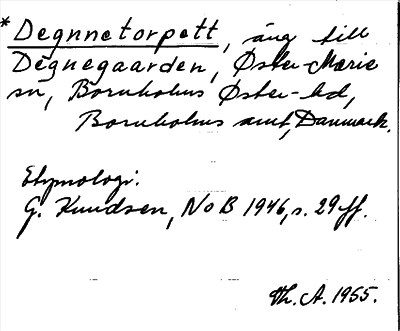 * Degnnetorpett, äng till
Degnegaarden, Øster-Marie
sn, Bornholms Øster-hd,
Bornholms amt, Danmark.
Etymologi:
G. Knudsen, NoB 1946, s. 29 ff.
Th. A. 1955.